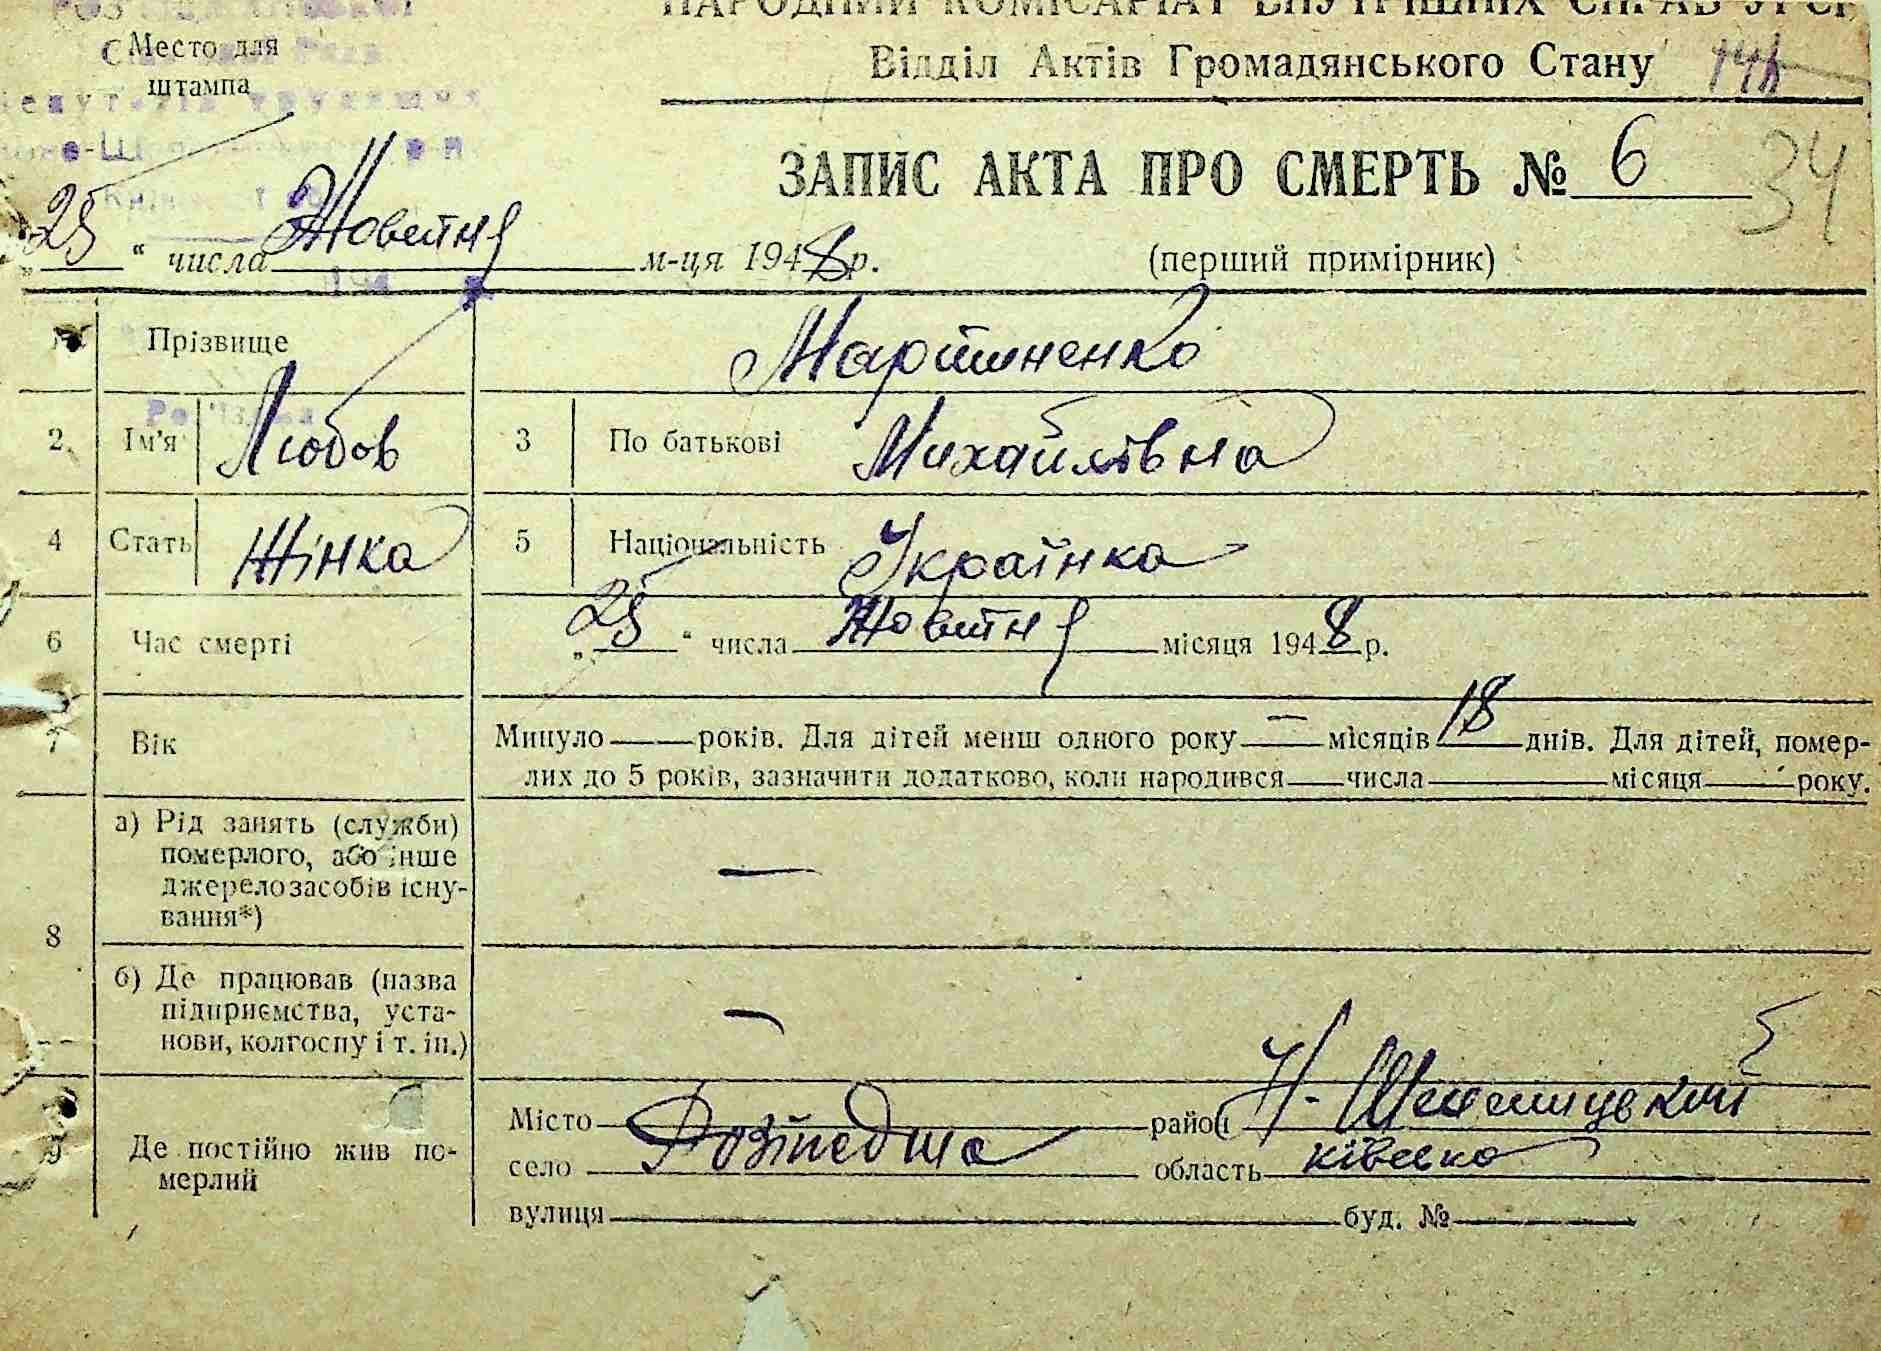 НАРОДНИЙ КОМІСАРІАТ ВНУТРІШНІХ СПРАВ УРСР
Место для
штампа
Відділ Актів Громадянського Стану
ЗАПИС АКТА ПРО СМЕРТЬ № 6
34
„25“ числа Жовтня м-ця 1948 р. (перший примірник)
Прізвище Мартиненко
2 Ім'я Любов 3 По батькові Михайлівна
4 Стать Жінка 5 Національність Українка
6 Час смерті „25“ числа Жовтня місяця 1948 р.
7 Вік Минуло — років. Для дітей менш одного року — місяців 18 днів. Для дітей, помер-
лих до 5 років, зазначити додатково, коли народився числа місяця року.
8 а) Рід занять (служби)
померлого, або інше
джерело засобів існу-
вання*) —
б) Де працював (назва
підприємства, уста-
нови, колгоспу і т. ін.) —
9 Де постійно жив по-
мерлий
Місто район Н-
село область
вулиця буд. №